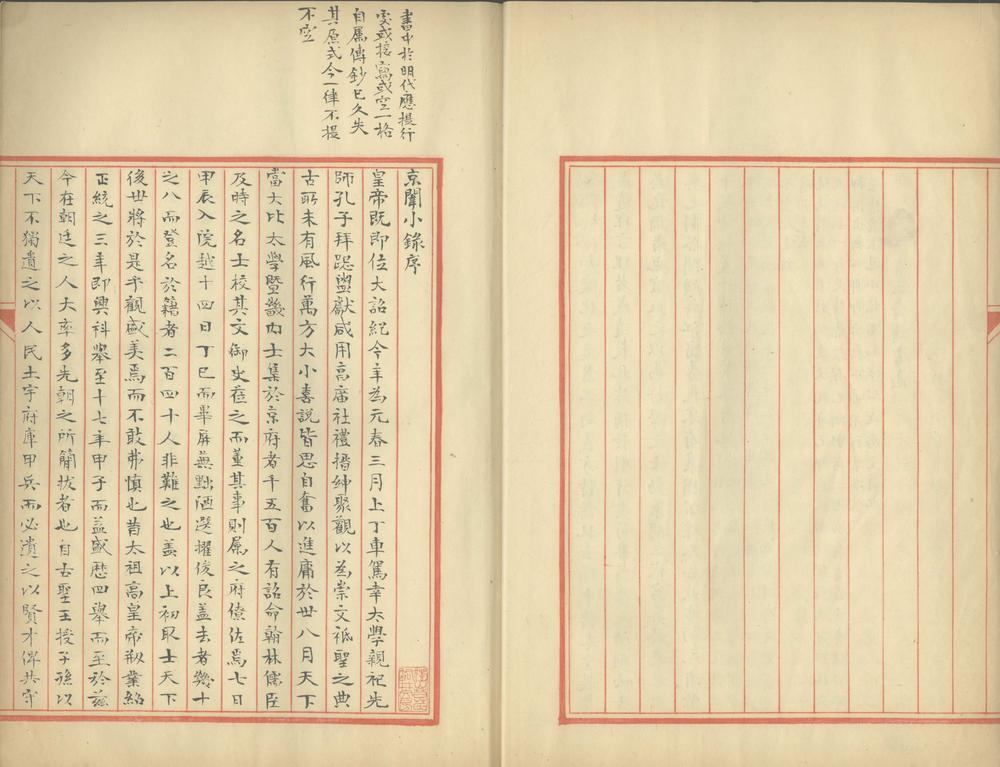 書中於明代應提行
處或接寫或空一格
自屬傳鈔已久失
其原式今一律不提
不空
京闈小錄序
皇帝既即位大詔紀今年為元春三月上丁車駕幸太學親祀先
師孔子拜跽盥獻咸用高庙社禮搢紳聚觀以為崇文祗聖之典
古所未有風行萬方大小喜說皆思自奮以進庸於世八月天下
當大比太學暨畿内士集於京府者千五百人有詔命翰林儒臣
及時之名士校其文御史莅之而董其事則属之府僚佐焉七日
甲辰入院越十四日丁巳而畢屏蕪黜洒選擢俊良盖去者幾十
之八而登名於籍者二百四十人非難之也盖以上初取士天下
後世將於是乎觀盛美焉而不敢弗慎也昔太祖高皇帝刱業紿
正統之三年即興科舉至十七年甲子而益盛歷四舉而至於兹
今在朝廷之人大率多先朝之所簡拔者也自古聖王授子孫以
天下不獨遺之以人民土宇府庫甲兵而必遺之以賢才俾共守